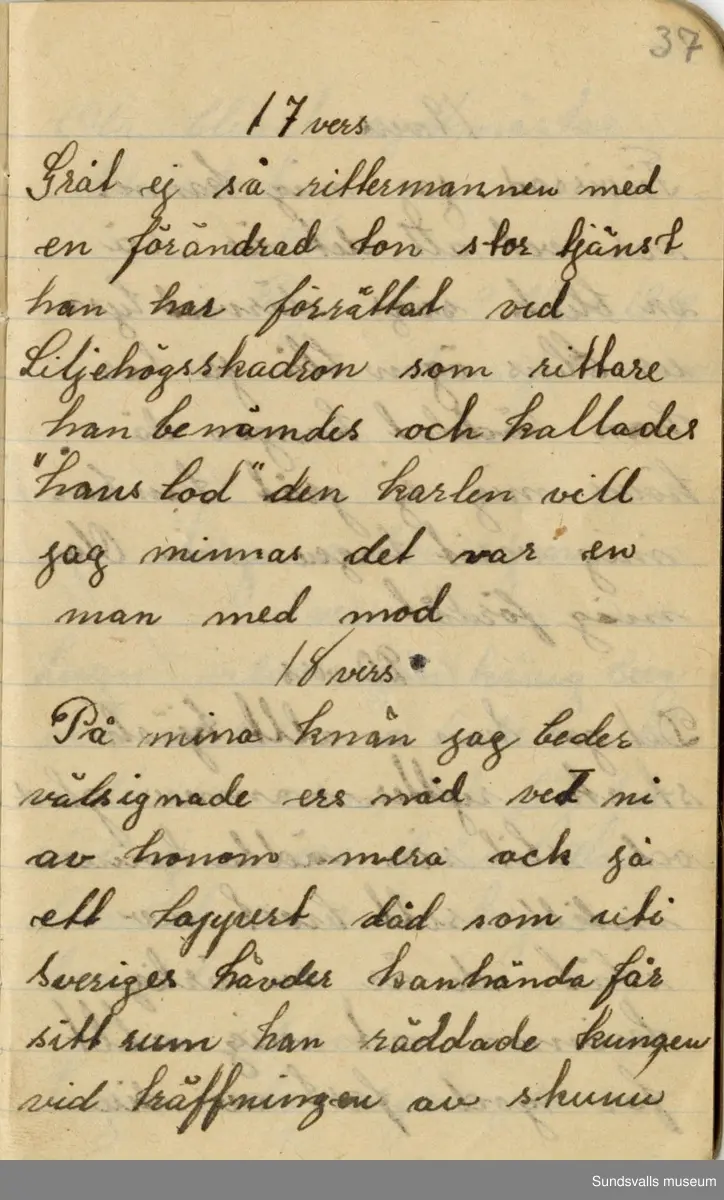 37
17 vers
Gråt ej så rittermannen med
en förändrad ton stor tjänst
han har förrättat vid
Liljehögsskadron som rittare
han benämdes och kallades
"håns lod" den karlen vill
jag minnas det var en
man med mod
18 vers
På mina knän jag beder
välsignade ers nåd vet ni
av honom mera ack jå
ett tappert dåd som uti
Sveriges hävder kanhända får
sitt rum han räddade kungen
vid träffningen av skuuu
Sundsvalls museum